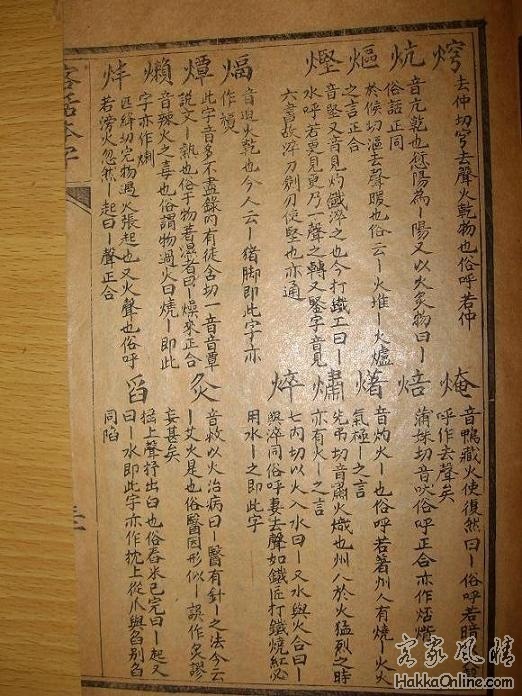 去仲切穹去聲火乾物也俗呼若仲
炕
音亢乾也愆陽為｜陽又以火炙物曰｜
俗話正同
熰
於候切漚去聲暖也俗云｜火堆｜火爐
之言正合
熞
音堅又音見灼鐵淬之也今打鐵工曰｜
水呼若更見更乃一聲之轉又鋻字音見
六書故淬刀劍刃使堅也亦通
煏
音逼火乾也今人云｜豬脚即此字亦
作
燂
此字音多不盡錄內有徒含切一音音覃
說文｜熱也俗于物著濕者曰｜燥來正合
音辣火之毒也俗謂物過火曰燒｜即此
字亦作
匹絳切完物遇火張起也又火聲也俗呼
若滂火忽然｜起曰｜聲正合
音鴨藏火使復然曰｜俗呼若暗｜
呼作去聲矣
焙
蒲妹切音吠俗呼正合亦作
音灼火｜也俗呼若著州人有燒｜火火
氣極｜之言
熽
先弔切音肅火熾也州人於火猛烈之時
亦有火｜之言
焠
七內切以火入水曰｜又水與火合曰｜
與淬同俗呼妻去聲如鐵匠打鐵燒紅必
用水｜之即此字
灸
音救以火治病曰｜醫有針｜之法今云
｜艾火是也俗醫因形似｜誤作炙謬
妄甚矣
舀
猺上聲抒出臼也俗舂米已完曰｜起又
曰｜水即此字亦作上從爪與臽別臽
同陷
客話本字
客家風情
HakkaOnline.com